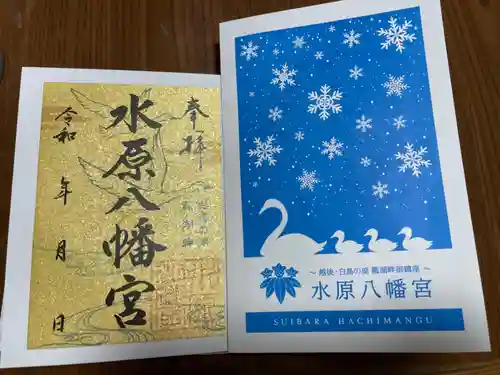 奉拝
水原八幡宮
令和 年 月 日
越後・白鳥の湖 瓢湖畔御鎮座
水原八幡宮
SUIBARA HACHIMANGU